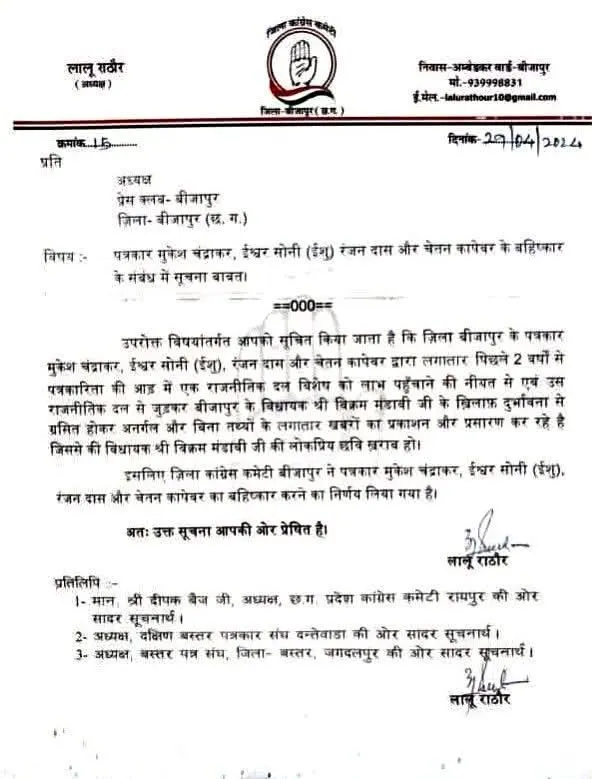 जिला कांग्रेस कमेटी
लालू राठौर
(अध्यक्ष)
निवास-अम्बेडकर वार्ड-बीजापुर
मो.-939998831
ई.मेल.-lalurathour10@gmail.com
जिला-बीजापुर (छ.ग.)
क्रमांक 15
दिनांक- 29/04/2024
प्रति
अध्यक्ष
प्रेस क्लब- बीजापुर
ज़िला- बीजापुर (छ. ग.)
विषय :- पत्रकार मुकेश चंद्राकर, ईश्वर सोनी (ईशु) रंजन दास और चेतन कापेवर के बहिष्कार
के संबंध में सूचना बाबत।
==000==
उपरोक्त विषयांतर्गत आपको सूचित किया जाता है कि ज़िला बीजापुर के पत्रकार
मुकेश चंद्राकर, ईश्वर सोनी (ईशु), रंजन दास और चेतन कापेवर द्वारा लगातार पिछले 2 वर्षों से
पत्रकारिता की आड़ में एक राजनीतिक दल विशेष को लाभ पहुँचाने की नीयत से एवं उस
राजनीतिक दल से जुड़कर बीजापुर के विधायक श्री विक्रम मंडावी जी के ख़िलाफ़ दुर्भावना से
ग्रसित होकर अनर्गल और बिना तथ्यों के लगातार खबरों का प्रकाशन और प्रसारण कर रहे है
जिससे की विधायक श्री विक्रम मंडावी जी की लोकप्रिय छवि ख़राब हो।
इसलिए ज़िला कांग्रेस कमेटी बीजापुर ने पत्रकार मुकेश चंद्राकर, ईश्वर सोनी (ईशु),
रंजन दास और चेतन कापेवर का बहिष्कार करने का निर्णय लिया गया है।
अतः उक्त सूचना आपकी ओर प्रेषित है।
लालू राठौर
प्रतिलिपि :-
1- मान. श्री दीपक बैज जी, अध्यक्ष, छ.ग. प्रदेश कांग्रेस कमेटी रायपुर की ओर
सादर सूचनार्थ।
2- अध्यक्ष, दक्षिण बस्तर पत्रकार संघ दन्तेवाडा की ओर सादर सूचनार्थ।
3- अध्यक्ष, बस्तर पत्र संघ, जिला- बस्तर, जगदलपुर की ओर सादर सूचनार्थ।
लालू राठौर